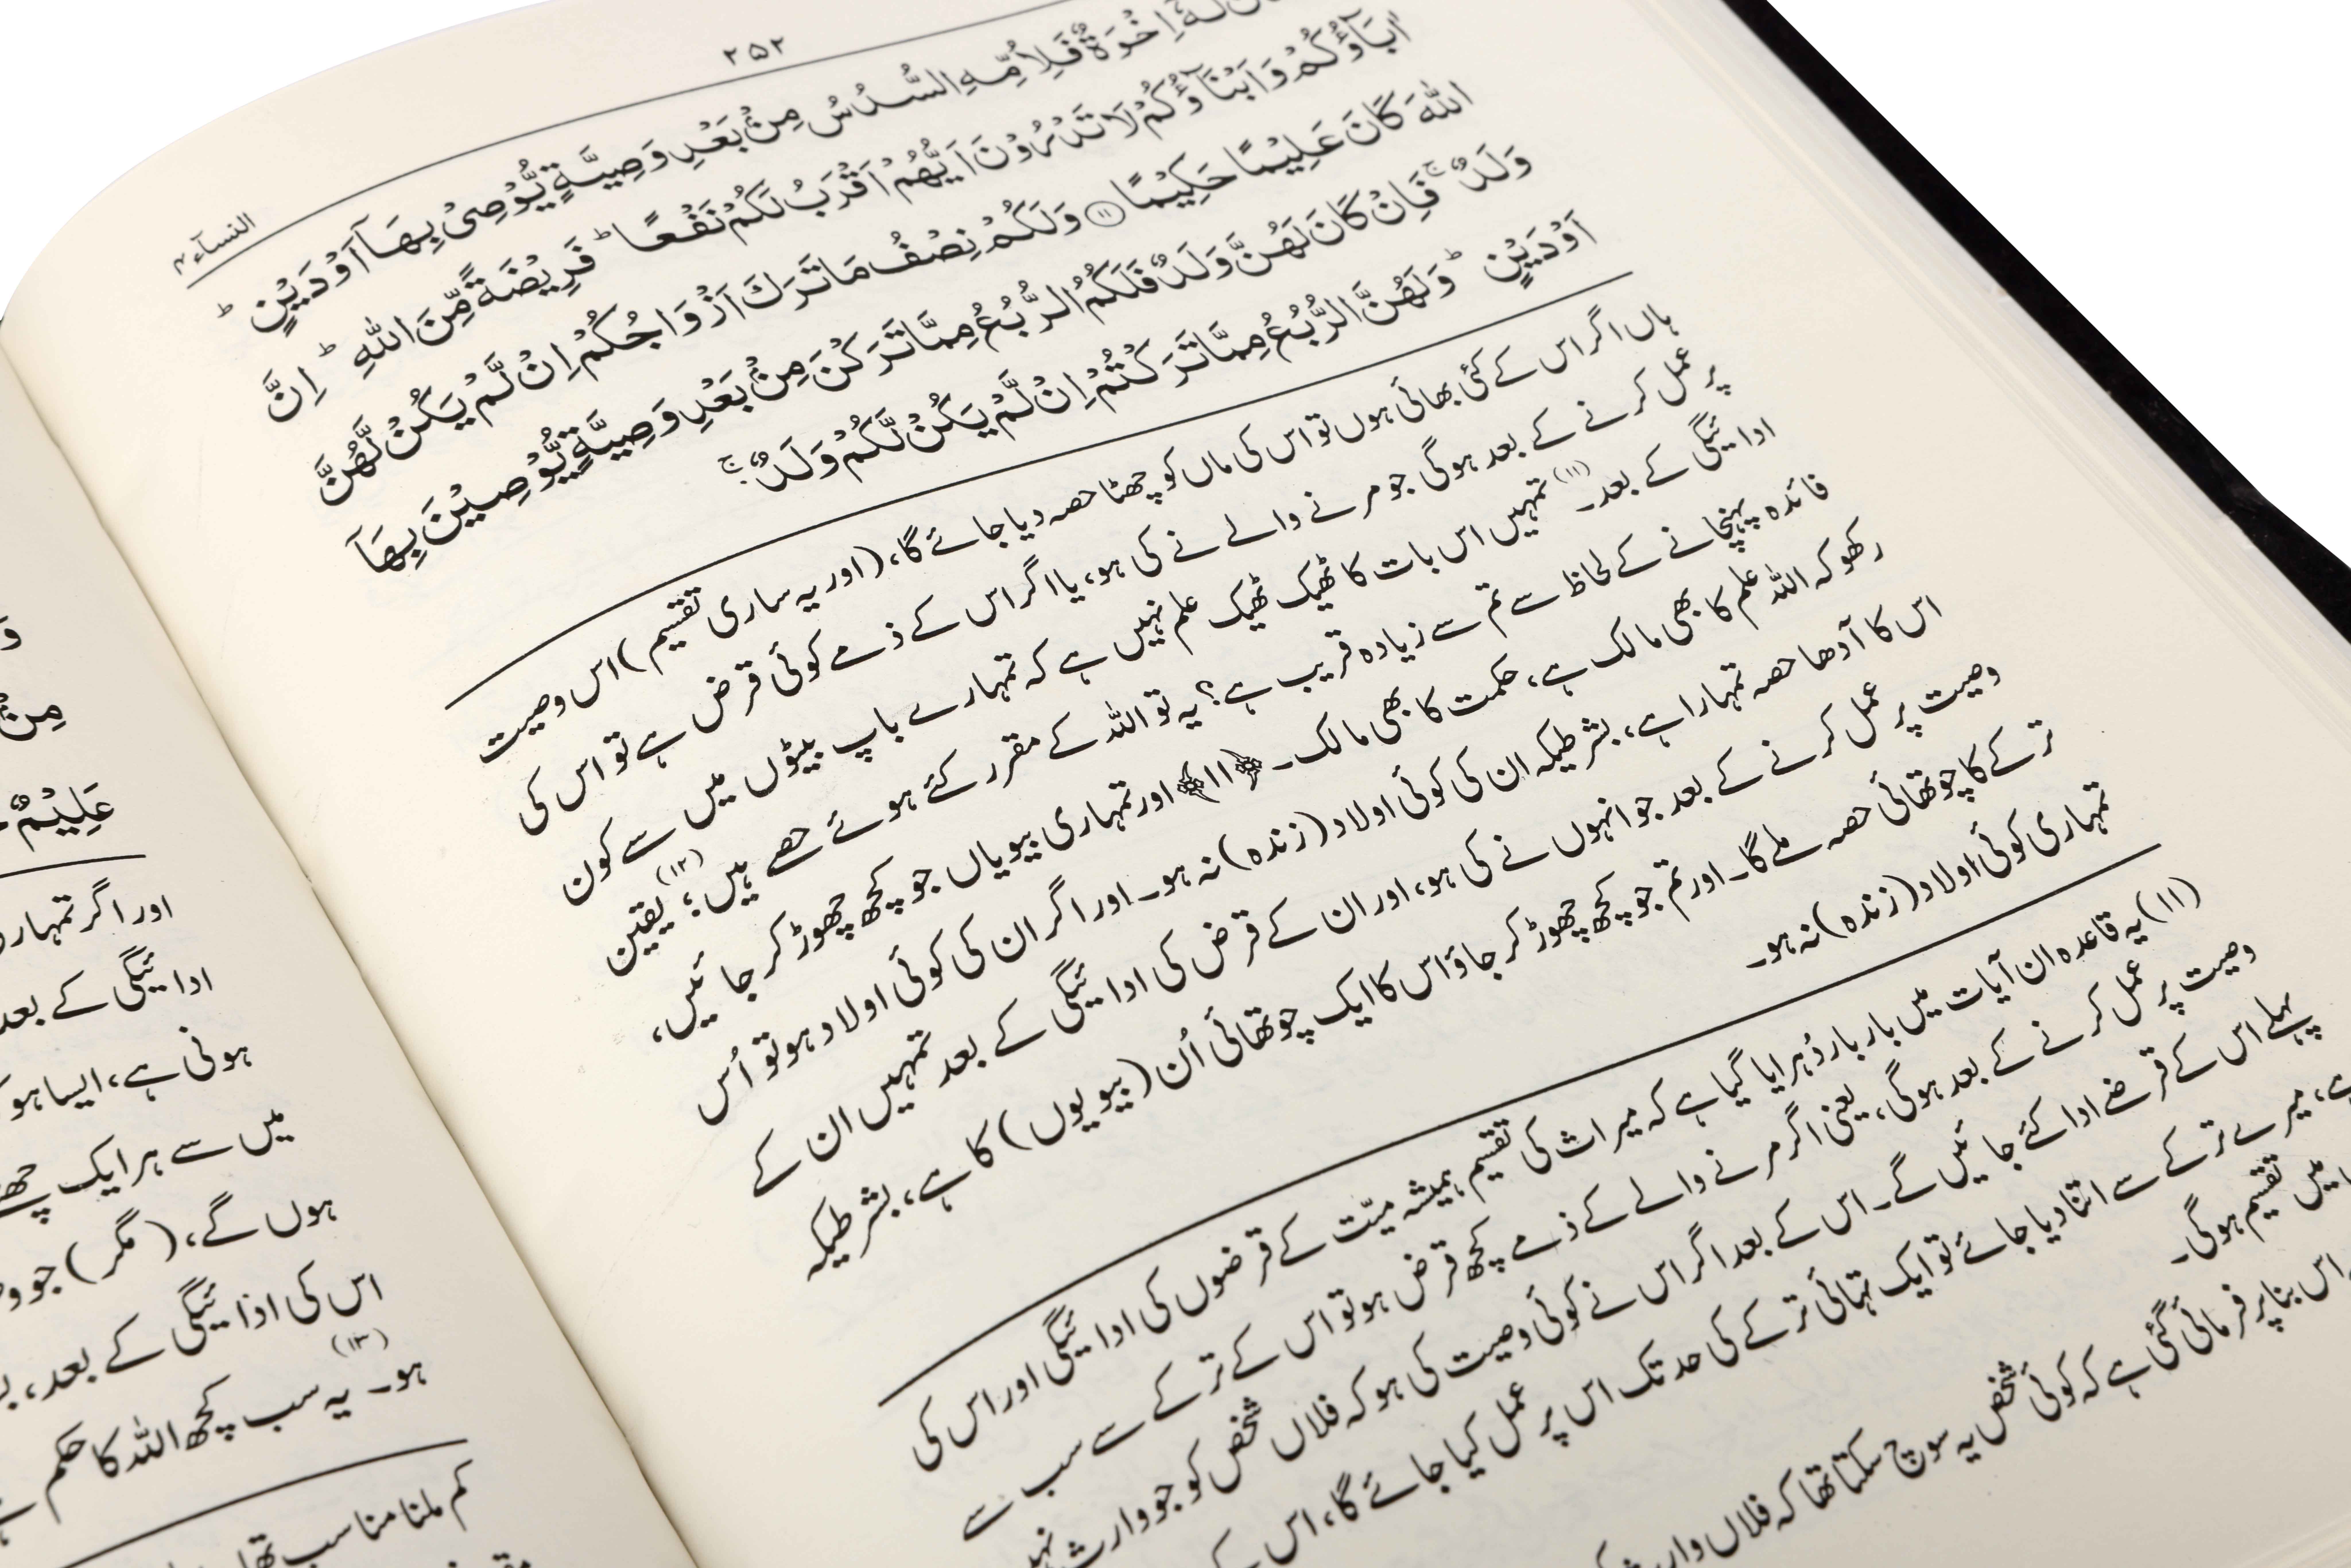 ۲۵۲
النسآء ۴
لَهٗۤ اِخْوَةٌ فَلِاُمِّهِ السُّدُسُ مِنْۢ بَعْدِ وَصِيَّةٍ يُّوْصِىْ بِهَاۤ اَوْ دَيْنٍ ؕ
اٰبَآؤُكُمْ وَاَبْنَآؤُكُمْ لَا تَدْرُوْنَ اَيُّهُمْ اَقْرَبُ لَكُمْ نَفْعًا ؕ فَرِيْضَةً مِّنَ اللّٰهِ ؕ اِنَّ
اللّٰهَ كَانَ عَلِيْمًا حَكِيْمًا ﴿۱۱﴾ وَلَكُمْ نِصْفُ مَا تَرَكَ اَزْوَاجُكُمْ اِنْ لَّمْ يَكُنْ لَّهُنَّ
وَلَدٌ ۚ فَاِنْ كَانَ لَهُنَّ وَلَدٌ فَلَكُمُ الرُّبُعُ مِمَّا تَرَكْنَ مِنْۢ بَعْدِ وَصِيَّةٍ يُّوْصِيْنَ بِهَاۤ
اَوْ دَيْنٍ ؕ وَلَهُنَّ الرُّبُعُ مِمَّا تَرَكْتُمْ اِنْ لَّمْ يَكُنْ لَّكُمْ وَلَدٌ ۚ
ہاں اگر اس کے کئی بھائی ہوں تو اس کی ماں کو چھٹا حصہ دیا جائے گا، (اور یہ ساری تقسیم) اس وصیت
پر عمل کرنے کے بعد ہوگی جو مرنے والے نے کی ہو، یا اگر اس کے ذمے کوئی قرض ہے تو اس کی
ادائیگی کے بعد۔(۱۱) تمہیں اس بات کا ٹھیک ٹھیک علم نہیں ہے کہ تمہارے باپ بیٹوں میں سے کون
فائدہ پہنچانے کے لحاظ سے تم سے زیادہ قریب ہے؟ یہ تو اللہ کے مقرر کئے ہوئے حصے ہیں؛(۱۲) یقین
رکھو کہ اللہ علم کا بھی مالک ہے، حکمت کا بھی مالک۔ ﴿۱۱﴾ اور تمہاری بیویاں جو کچھ چھوڑ کر جائیں،
اس کا آدھا حصہ تمہارا ہے، بشرطیکہ ان کی کوئی اولاد (زندہ) نہ ہو۔ اور اگر ان کی کوئی اولاد ہو تو اُس
وصیت پر عمل کرنے کے بعد جو انہوں نے کی ہو، اور ان کے قرض کی ادائیگی کے بعد تمہیں ان کے
ترکے کا چوتھائی حصہ ملے گا۔ اور تم جو کچھ چھوڑ کر جاؤ اس کا ایک چوتھائی اُن (بیویوں) کا ہے، بشرطیکہ
تمہاری کوئی اولاد (زندہ) نہ ہو۔
(۱۱) یہ قاعدہ ان آیات میں بار بار دُہرایا گیا ہے کہ میراث کی تقسیم ہمیشہ میّت کے قرضوں کی ادائیگی اور اس کی
وصیت پر عمل کرنے کے بعد ہوگی، یعنی اگر مرنے والے کے ذمے کچھ قرض ہو تو اس کے ترکے سے سب سے
پہلے اس کے قرضے ادا کئے جائیں گے۔ اس کے بعد اگر اس نے کوئی وصیت کی ہو کہ فلاں شخص کو جو وارث
میرے ترکے سے اتنا دیا جائے تو ایک تہائی ترکے کی حد تک اس پر عمل کیا جائے گا، اس کے
میں تقسیم ہوگی۔
اس بنا پر فرمائی گئی ہے کہ کوئی شخص یہ سوچ سکتا تھا کہ فلاں
مِنْۢ
عَلِيْمٌ
اور اگر
ادائیگی کے بعد
ہوتی ہے، ایسا ہو
میں سے ہر ایک
ہوں گے، (مگر) جو
اس کی ادائیگی کے بعد،
ہو۔(۱۳) یہ سب کچھ اللہ کا حکم
کم ملنا مناسب